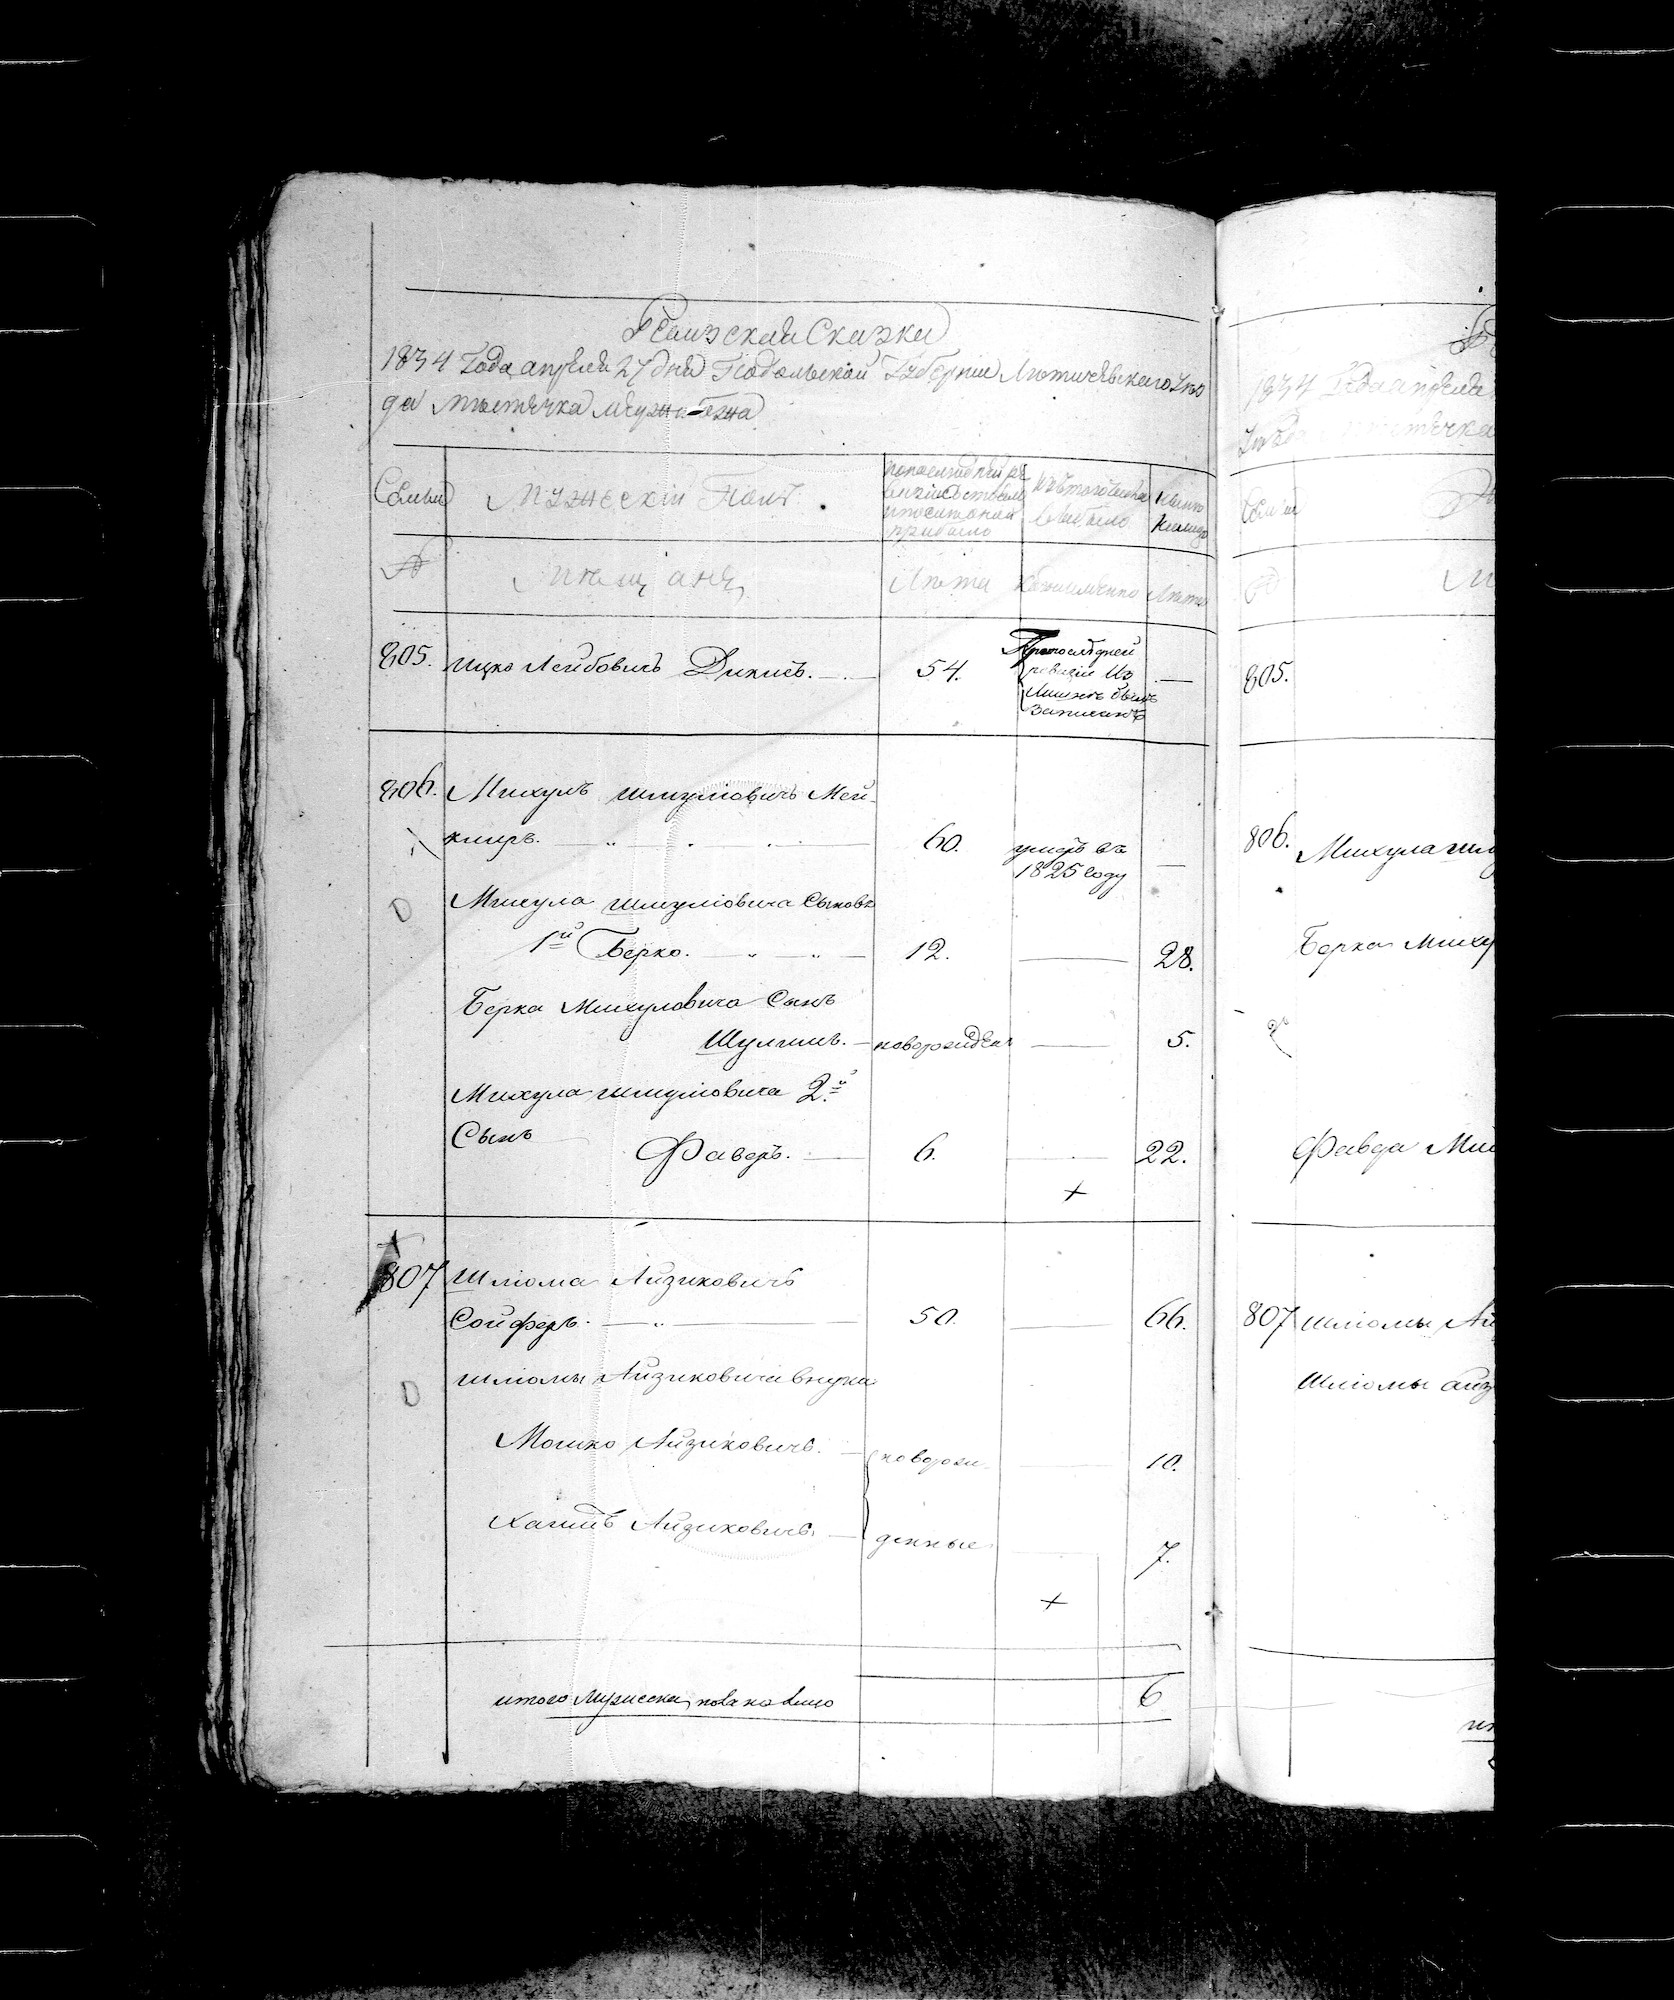 Ревизская Сказка
1834 Года апреля 27 дня Подольской Губернии Летичевскаго Уез
да местечка Межи-Бжа
Семьи
Мужескій Полъ.
по последней ре
визіи состояло
и после оной
прибыло
Изъ того числа
выбыло
Ныне
на лицо
№
Мещане
Лета
Когда имянно
Лета
805. Ицко Лейбовичъ 54.
По последней
ревизіи Из
Лишекъ былъ
Записанъ
806. Михулъ Шмулiовичъ Мей-
клеръ. 60. умеръ въ
1825 году
Михула Шмулiовича Сыновья
1й Берко. 12. 28.
Берка Михуловича Сынъ
Шулимъ. новорожденъ 5.
Михула Шмулiовича 2й
Сынъ
Фаверъ. 6. 22.
+
807 Шлiома Айзиковичъ
Сойферъ. 50. 66.
Шлiомы Айзиковича внуки
Мошко Айзиковичъ. новорож- 10.
Хаимъ Айзиковичъ. денные 7.
+
итого Мужеска пола на лицо 6
1834 Года апреля
Уезда местечка
Семьи
№
805.
806. Михула Шму
Берка Миху
Фавера Мих
807 Шлiомы Ай
Шлiомы Айз